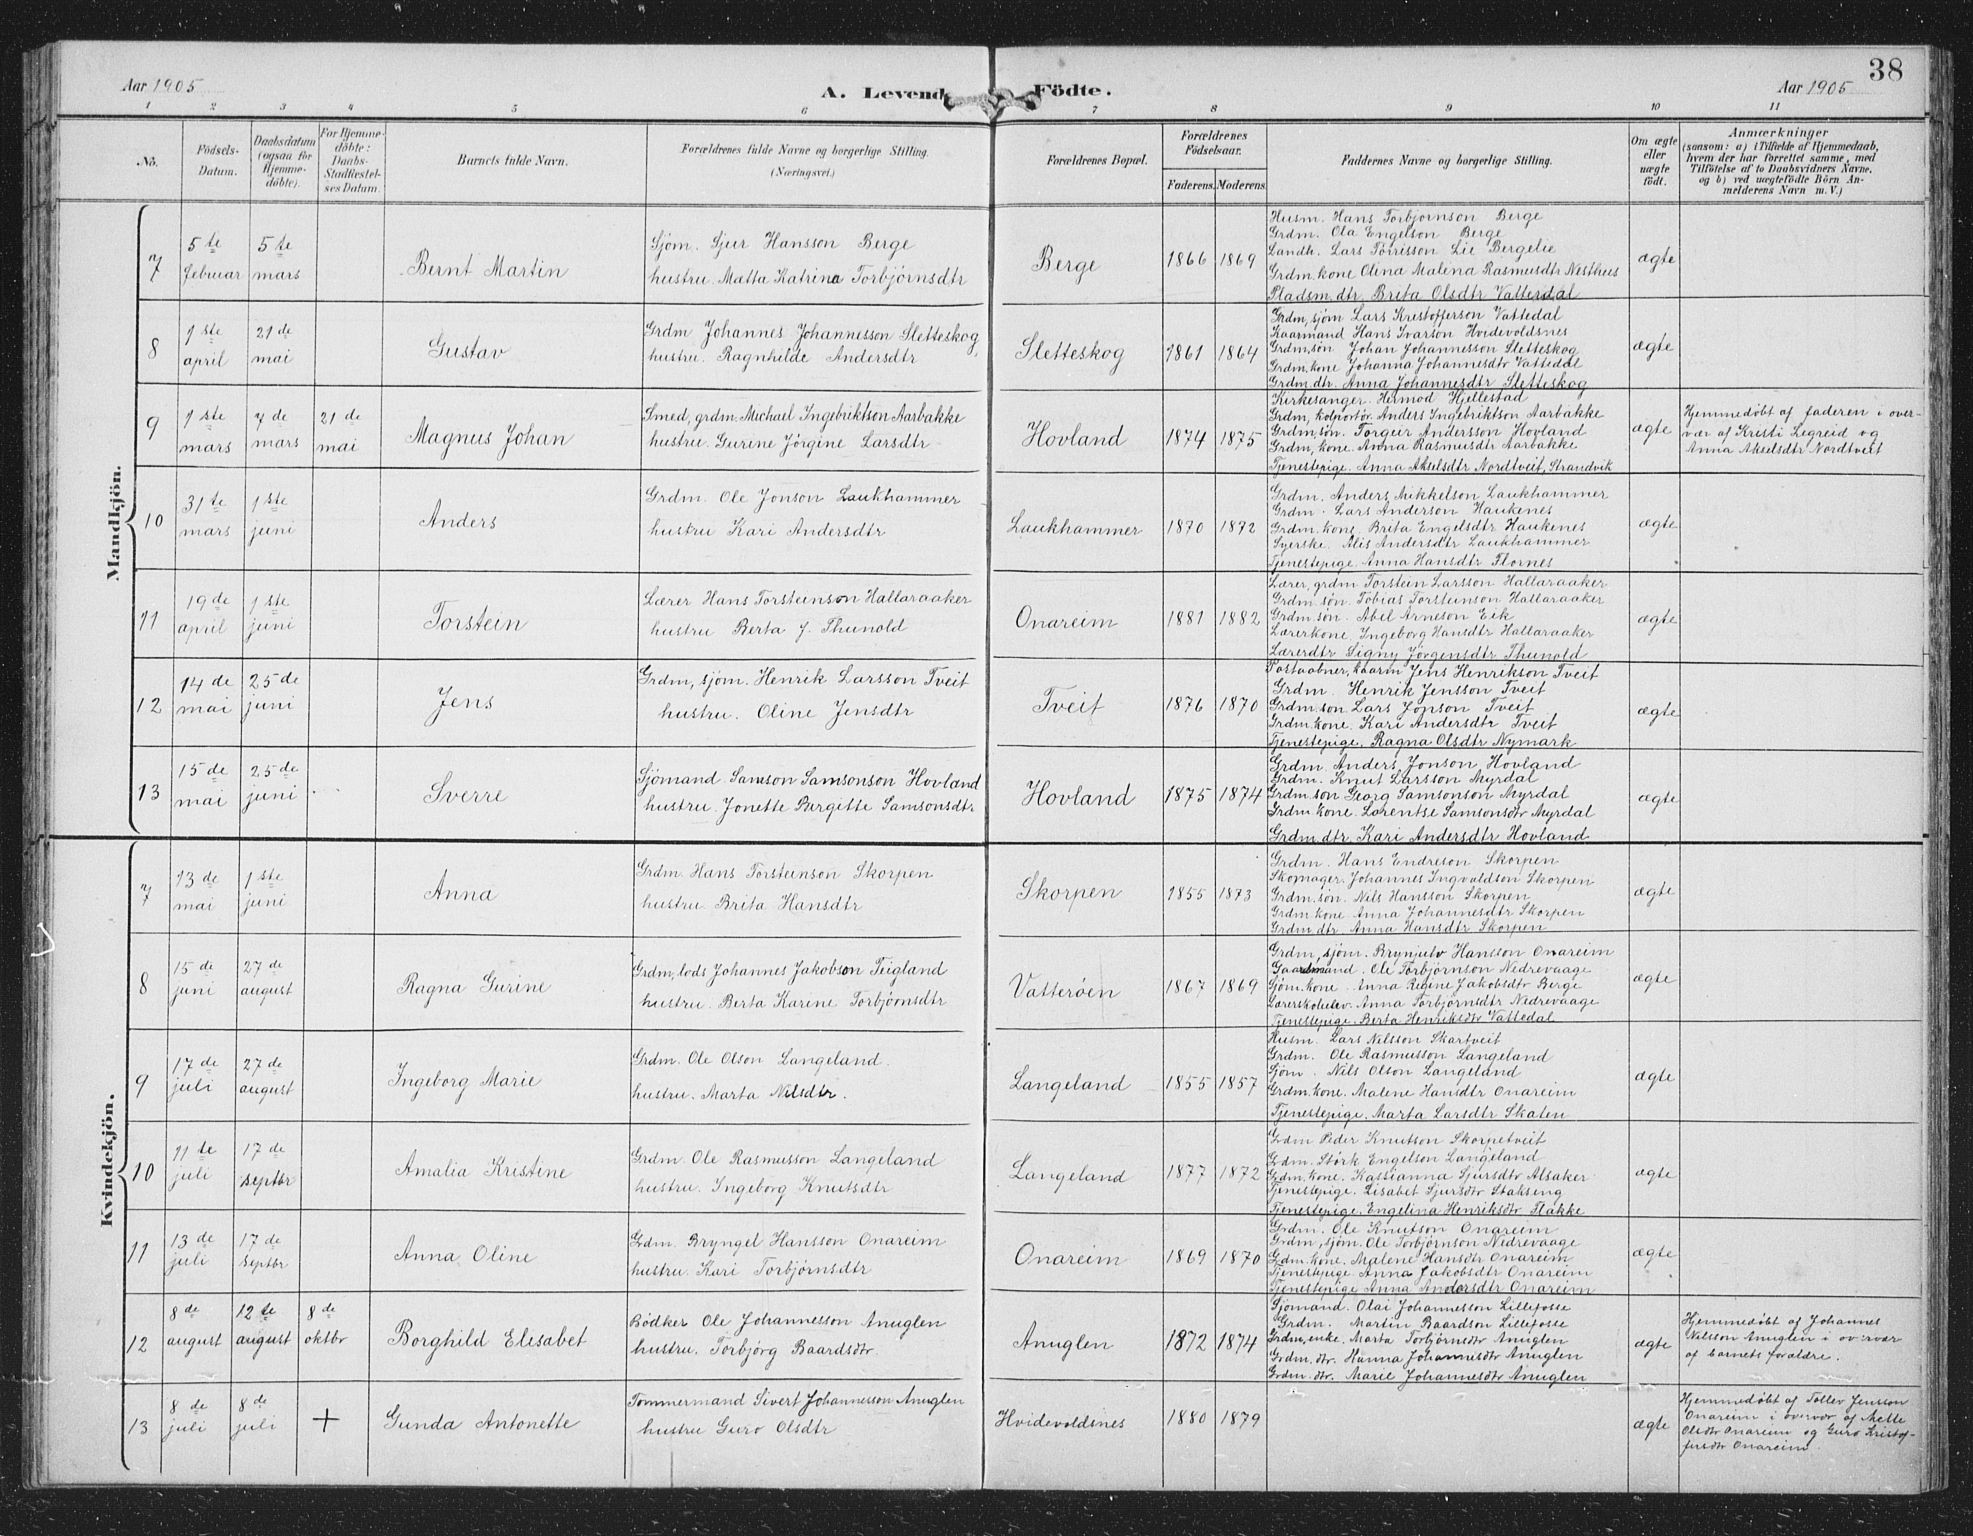 38
Aar 1905
A. Levende Födte.
Aar 1905
1 2 3 4 5 6 7 8 9 10 11
No.
Födsels-Datum.
Daabsdatum (ogsaa for Hjemmedöbte).
For Hjemmedöbte: Daabs-Stadfæstelses Datum.
Barnets fulde Navn.
Forældrenes fulde Navne og borgerlige Stilling. (Næringsvei.)
Forældrenes Bopæl.
Forældrenes Födselsaar.
Faderens. Moderens.
Faddernes Navne og borgerlige Stilling.
Om ægte eller uægte födt.
Anmærkninger
(saasom: a) i Tilfælde af Hjemmedaab,
hvem der har forrettet samme, med
Tilföielse af to Daabsvidners Navne.
og b) ved uægtefödte Börn An-
melderens Navn m. V.)
Mandkjön.
7
5te februar
5te mars
Bernt Martin
Sjöm. Sjur Hansson Berge
hustru Matta Katrina Torbjörnsdtr
Berge
1866 1869
Husm. Hans Torbjörnson Berge
Grdm. Ola Engelson Berge
Landh. Lars Torrisson Lie Bergelie
Grdm.kone Olina Malena Rasmusdtr Nesthus
Pladsm.dtr Brita Olsdtr Vatterdal
ægte
8
1ste april
21de mai
Gustav
Grdm Johannes Johannesson Sletteskog
hustru. Ragnhilde Andersdtr
Sletteskog
1861 1864
Grdm, sjöm Lars Kristofferson Vattedal
Kaarmand Hans Ivarson Hvidevoldsnes
Grdm.sön Johan Johannesson Sletteskog
Grdm.kone Johanna Johannesdtr Vattedal
Grdm.dtr. Anna Johannesdtr Sletteskog
ægte
9
1ste mars
7de mars
21de mai
Magnus Johan
Smed, grdm. Michael Ingebriktson Aarbakke
hustru. Gurine Jörgine Larsdtr
Hovland
1874 1875
Kirkesanger. Hermod Hjellestad
Grdm, kolportör. Anders Ingebriktson Aarbakke
Grdm.sön. Torgeir Andersson Hovland
Grdm, kone. Anna Rasmusdtr Aarbakke
Tjenestepige. Anna Akselsdtr Nordtveit, Strandvik
ægte
Hjemmedöbt af faderen i over-
vær af Kristi Legreid og
Anna Akselsdtr Nordtveit
10
31te mars
1ste juni
Anders
Grdm. Ole Jonson Laukhammer
hustru Kari Andersdtr
Laukhammer
1870 1872
Grdm. Anders Mikkelson Laukhammer
Grdm. Lars Anderson Haukenes
Grdm.kone Brita Engelsdtr Haukenes
Syerske. Alis Andersdtr Laukhammer
Tjenestepige. Anna Hansdtr Flornes
ægte
11
19de april
1ste juni
Torstein
Lærer Hans Torsteinson Hallaraaker
hustru Berta J. Thunold
Onareim
1881 1882
Lærer, grdm Torstein Larsson Hallaraaker
Grdm.sön. Tobias Torsteinson Hallaraaker
Grdm.sön. Abel Arneson Eik
Lærerkone Ingeborg Hansdtr Hallaraaker
Lærerdtr Signy Jörgensdtr Thunold
ægte
12
14de mai
25de juni
Jens
Grdm, sjöm. Henrik Larsson Tveit
hustru. Oline Jensdtr
Tveit
1876 1870
Postaabner, kaarm Jens Henrikson Tveit
Grdm. Henrik Jensson Tveit
Grdm.son Lars Jonson Tveit
Grdm.kone. Kari Andersdtr Tveit
Tjenestepige. Ragna Olsdtr Nymark
ægte
13
15de mai
25de juni
Sverre
Sjömand. Samson Samsonson Hovland
hustru. Jonette Birgitte Samsonsdtr
Hovland
1875 1874
Grdm. Anders Jonson Hovland
Grdm. Knut Larsson Myrdal
Grdm.son Georg Samsonson Myrdal
Grdm.kone. Lorentse Samsonsdtr Myrdal
Grdm.dtr. Kari Andersdtr Hovland
ægte
Kvindekjön.
7
13de mai
1ste juni
Anna
Grdm. Hans Torsteinson Skorpen
hustru Brita Hansdtr
Skorpen
1855 1873
Grdm. Hans Endreson Skorpen
Skomager. Johannes Ingvaldson Skorpen
Grdm.sön. Nils Hansson Skorpen
Grdm.kone Anna Johannesdtr Skorpen
Grdm.dtr Anna Hansdtr Skorpen
ægte
8
15de juni
27de august
Ragna Gurine
Grdm, lods Johannes Jakobson Teigland
hustru. Berta Karine Torbjörnsdtr
Vatteröen
1867 1869
Grdm, sjöm. Brynjulv Hansson Onareim
Gaardmand. Ole Torbjörnson Nedrevaage
Sjöm.kone. Anna Regine Jakobsdtr Berge
Lærerskolelev. Anna Torbjörnsdtr Nedrevaage
Tjenestepige. Berta Henriksdtr Vattedal
ægte
9
17de juli
27de august
Ingeborg Marie
Grdm. Ole Olson Langeland.
hustru. Marta Nilsdtr.
Langeland
1855 1857
Husm. Lars Nilsson Skartveit
Grdm. Ole Rasmusson Langeland
Sjöm. Nils Olson Langeland
Grdm.kone. Malene Hansdtr Onareim
Tjenestepige. Marta Larsdtr Skaten
ægte
10
11te juli
17de septbr
Amalia Kristine
Grdm. Ole Rasmusson Langeland
hustru. Ingeborg Knutsdtr
Langeland
1877 1872
Grdm Peder Knutson Skorpetveit
Grdm. Störk Engelson Langeland
Grdm.kone. Kastianna Sjursdtr Alsaker
Tjenestepige. Lisabet Sjursdtr Stakseng
Tjenestepige. Engelina Henriksdtr Flakke
ægte
11
13de juli
17de septbr
Anna Oline
Grdm. Bryngel Hansson Onareim
hustru. Kari Torbjörnsdtr
Onareim
1869 1870
Grdm. Ole Knutson Onareim
Grdm, sjöm. Ole Torbjörnson Nedrevaage
Grdm.kone. Malene Hansdtr Onareim
Tjenestepige Anna Jakobsdtr Onareim
Tjenestepige Anna Andersdtr Onareim
ægte
12
8de august
12te august
8de oktbr
Borghild Elisabet
Bödker Ole Johannesson Anuglen
hustru. Torbjörg Baardsdtr.
Anuglen
1872 1874
Sjömand. Olai Johannesson Lillefosse
Grdm. Martin Baardson Lillefosse
Grdm, enke. Marta Torbjörnsdtr Anuglen
Grdm.dtr. Hanna Johannesdtr Anuglen
Grdm.dtr. Marie Johannesdtr Anuglen
ægte
Hjemmedöbt af Johannes
Nilsson Anuglen i overvær
af barnets forældre.
13
8de juli
8de juli
+
Gunda Antonette
Tömmermand Sivert Johannesson Anuglen
hustru Guro Olsdtr
Hvidevoldsnes
1880 1879
ægte
Hjemmedöbt af Tollev Jensson
Onareim i overvær af Mette
Olsdtr Onareim og Guro Kristof-
fersdtr Onareim.